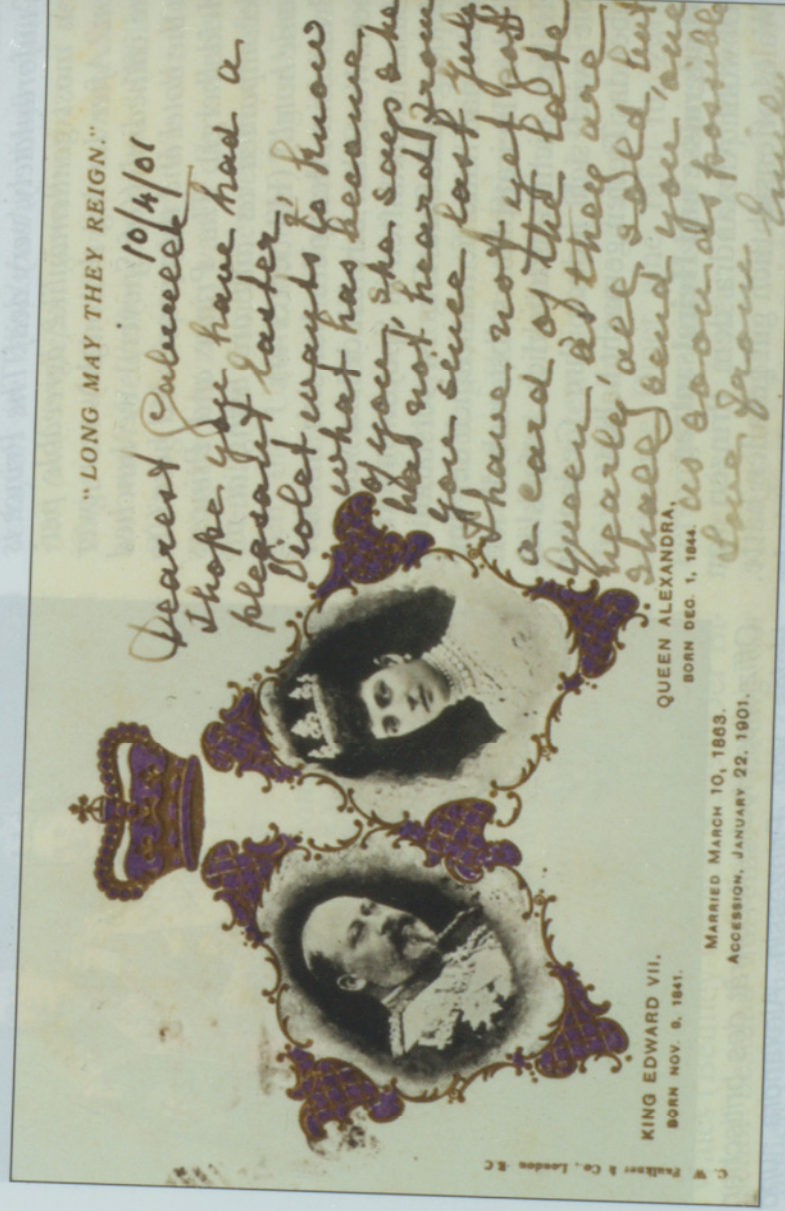 "LONG MAY THEY REIGN."
10/4/01
Dearest
I hope you have had a
pleasant Easter,
Violet wants to know
what has become
of you, she says she
has not heard from
you since last July
I have not yet got
a card of the late
Queen as they are
nearly all sold but
shall send you one
as soon as possible
Love from Emily
KING EDWARD VII.
BORN NOV. 9, 1841.
QUEEN ALEXANDRA,
BORN DEC. 1, 1844.
MARRIED MARCH 10, 1863.
ACCESSION, JANUARY 22, 1901.
C. W. Faulkner & Co., London E.C